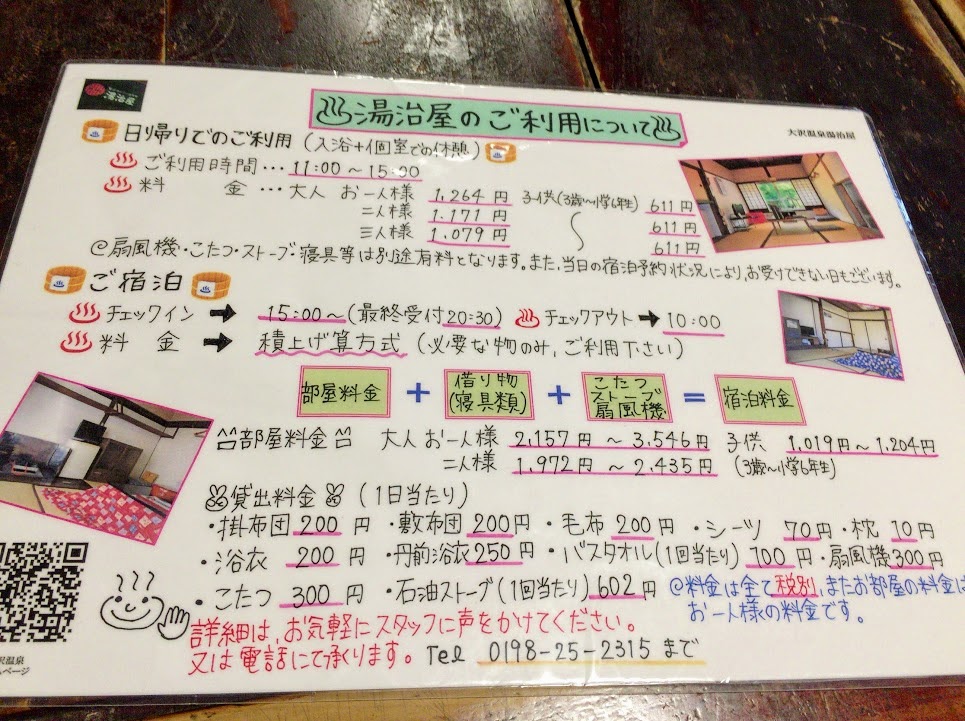 湯治屋のご利用について
大沢温泉湯治屋
日帰りでのご利用 (入浴+個室での休憩)
ご利用時間…11:00～15:00
料 金…大人 お一人様 1,264円 子供(3歳～小学6年生) 611円
二人様 1,171円 〃 611円
三人様 1,079円 611円
@扇風機・こたつ・ストーブ・寝具等は別途有料となります。また、当日の宿泊予約状況により、お受けできない日もございます。
ご宿泊
チェックイン → 15:00～(最終受付20:30) チェックアウト→10:00
料 金 → 積上げ算方式 (必要な物のみ、ご利用下さい)
部屋料金 + 借り物(寝具類) + こたつ ストーブ 扇風機 = 宿泊料金
部屋料金 大人 お一人様 2,157円 ～ 3,546円 子供 1,019円～1,204円
二人様 1,972円 ～ 2,435円 (3歳～小学6年生)
貸出料金 (1日当たり)
・掛布団 200円 ・敷布団 200円 ・毛布 200円 ・シーツ 70円 ・枕 10円
・浴衣 200円 ・丹前浴衣 250円 ・バスタオル(1回当たり) 100円 ・扇風機 300円
・こたつ 300円 ・石油ストーブ(1回当たり) 602円 @料金は全て税別、またお部屋の料金は
お一人様の料金です。
詳細は、お気軽にスタッフに声をかけてください。
又は電話にて承ります。 Tel 0198-25-2315 まで
沢温泉
ページ